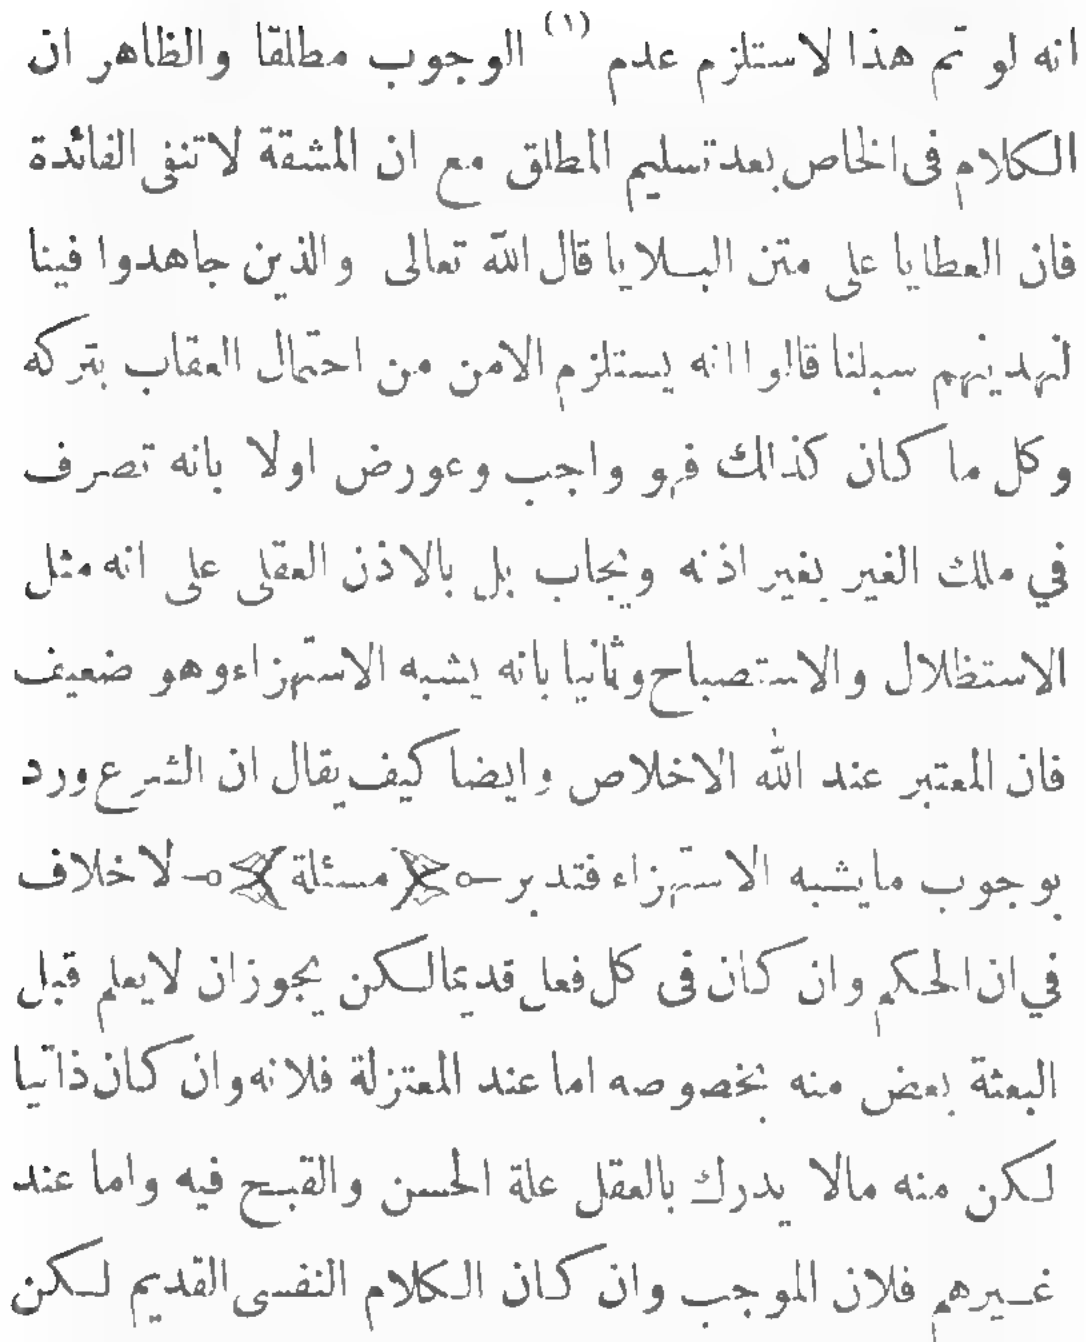 انه لو تم هذا لاستلزم عدم (١) الوجوب مطلقا والظاهر ان
الكلام فى الخاص بعد تسليم المطلق مع ان المشقة لا تنفى الفائدة
فان العطايا على متن البلايا قال الله تعالى والذين جاهدوا فينا
لنهدينهم سبلنا قالوا انه يستلزم الامن من احتمال العقاب بتركه
وكل ما كان كذالك فهو واجب وعورض اولا بانه تصرف
في ملك الغير بغير اذنه ويجاب بل بالاذن العقلى على انه مثل
الاستظلال والاستصباح وثانيا بانه يشبه الاستهزاء وهو ضعيف
فان المعتبر عند الله الاخلاص وايضا كيف يقال ان الشرع ورد
بوجوب ما يشبه الاستهزاء فتدبر مسئلة لا خلاف
في ان الحكم وان كان فى كل فعل قديما لكن يجوز ان لا يعلم قبل
البعثة بعض منه بخصوصه اما عند المعتزلة فلانه وان كان ذاتيا
لكن منه مالا يدرك بالعقل علة الحسن والقبح فيه واما عند
غيرهم فلان الموجب وان كان الكلام النفسى القديم لكن